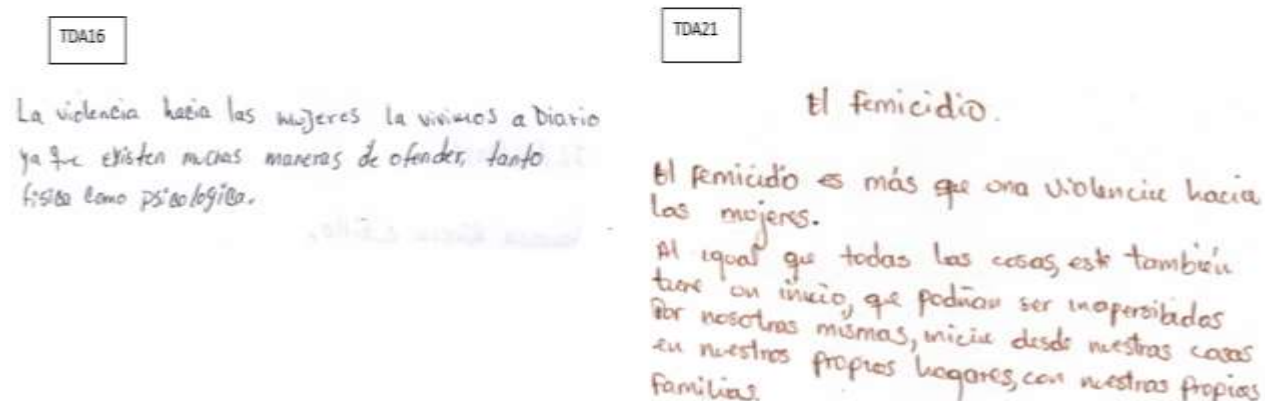 TDA16
La violencia hacia las mujeres la vivimos a Diario
ya que existen muchas maneras de ofender, tanto
fisica como psicologica.
TDA21
El femicidio.
El femicidio es más que una violencia hacia
las mujeres.
Al igual que todas las cosas, este también
tiene un inicio, que podrían ser inapersibidas
Por nosotras mismas, inicia desde nuestras casas
en nuestros propios hogares, con nuestras propias
familias